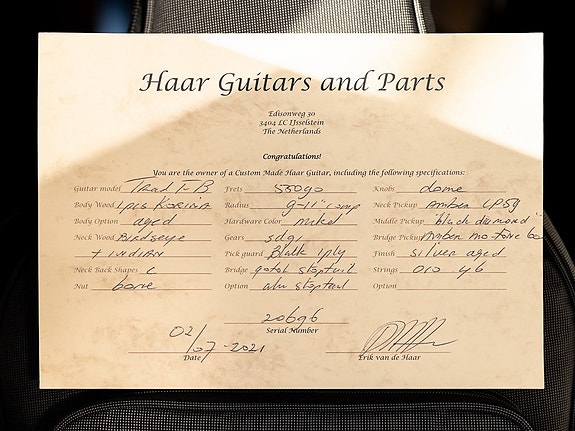 Haar Guitars and Parts
Edisonweg 30
3404 LC IJsselstein
The Netherlands
Congratulations!
You are the owner of a Custom Made Haar Guitar, including the following specifications:
Guitar model Trad T-B Frets 55090 Knobs dome
Body Wood 1pcs Korina Radius 9-11" comp Neck Pickup Amber LP59
Body Option aged Hardware Color nickel Middle Pickup "black diamond"
Neck Wood Birdseye Gears sdgi Bridge Pickup Amber
+ indian Pick guard Black 1ply Finish silver aged
Neck Back Shapes C Bridge gotoh stoptail Strings 010 46
Nut bone Option alu stoptail Option
20696
Serial Number
02/07-2021
Date Erik van de Haar